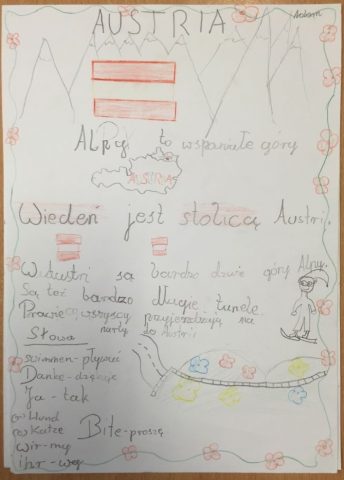 Adam
AUSTRIA
ALPY to wspaniałe góry
AUSTRIA
Wiedeń jest stolicą Austri.
W Austri są bardzo duże góry Alpy.
Są też bardzo długie tunele.
Prawie wszyscy przyjeżdzają na
narty do Austri
Słowa
swimmen-pływać
Danke-dziękuję
Ja-tak
Hund
Katze
Bite-proszę
wir-my
ihr-wy